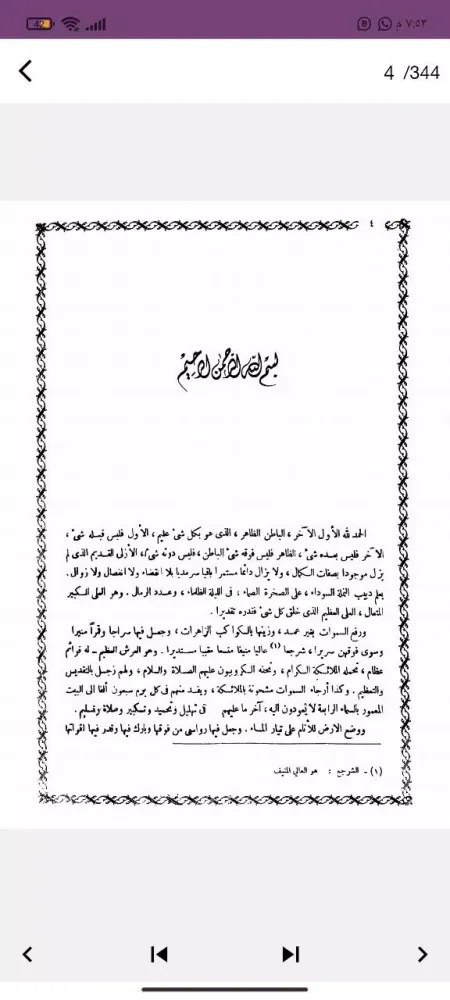 ٧:٥٣ م
42
4 /344
٤
بسم الله الرحمن الرحيم
الحمد لله الأول الآخر ، الباطن الظاهر ، الذى هو بكل شئ عليم ، الأول فليس قبله شئ ،
الآخر فليس بعده شئ ، الظاهر فليس فوقه شئ الباطن ، فليس دونه شئ ، الأزلى القديم الذى لم
يزل موجودا بصفات الكمال ، ولا يزال دائما مستمرا باقيا سرمديا بلا انقضاء ولا انفصال ولا زوال .
يعلم دبيب النملة السوداء ، على الصخرة الصماء ، فى الليلة الظلماء ، وعدد الرمال . وهو العلى الكبير
المتعال ، العلى العظيم الذى خلق كل شئ فقدره تقديرا .
ورفع السموات بغير عمد ، وزينها بالكواكب الزاهرات ، وجعل فيها سراجا وقمرا منيرا
وسوى فوقهن سريرا ، شرجعا (١) عاليا منيفا متسعا مقببا مستديرا . وهو العرش العظيم ـ له قوائم
عظام ، تحمله الملائكة الكرام ، وتحفه الكروبيون عليهم الصلاة والسلام ، ولهم زجل بالتقديس
والتعظيم . وكذا أرجاء السموات مشحونة بالملائكة ، ويفد منهم فى كل يوم سبعون ألفا الى البيت
المعمور بالسماء الرابعة لا يعودون اليه ، آخر ما عليهم فى تهليل وتحميد وتكبير وصلاة وتسليم .
ووضع الارض للأنام على تيار الماء . وجعل فيها رواسى من فوقها وبارك فيها وقدر فيها أقواتها
(١) - الشرجع : هو العالي المنيف